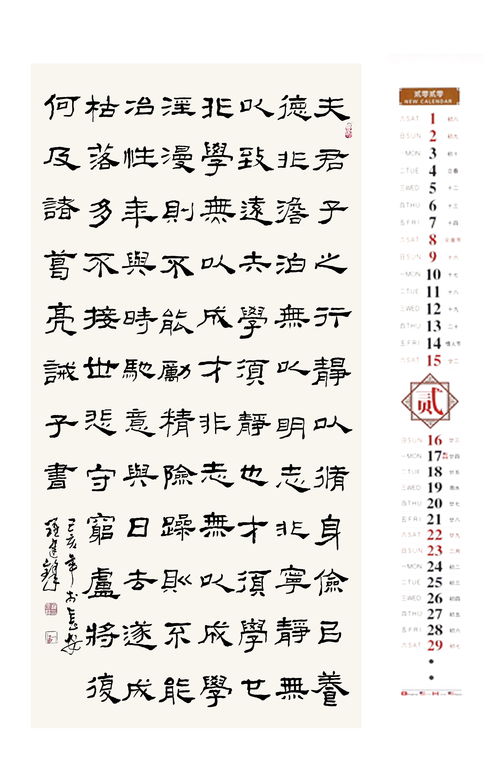 夫君子之行靜以脩身儉以養
德非澹泊無以明志非寧靜無
以致遠夫學須靜也才須學也
非學無以成才非志無以成學
淫漫則不能勵精險躁則不能
冶性年與時馳意與日去遂成
枯落多不接世悲守窮盧將復
何及諸葛亮誡子書
己亥年於長安
贰零贰零
NEW CALENDAR
六 SAT 1 初八
日 SUN 2 初九
一 MON 3 初十
二 TUE 4 立春
三 WED 5 十二
四 THU 6 十三
五 FRI 7 十四
六 SAT 8 元宵节
日 SUN 9 十六
一 MON 10 十七
二 TUE 11 十八
三 WED 12 十九
四 THU 13 二十
五 FRI 14 情人节
六 SAT 15 廿二
贰
日 SUN 16 廿三
一 MON 17 廿四
二 TUE 18 廿五
三 WED 19 雨水
四 THU 20 廿七
五 FRI 21 廿八
六 SAT 22 廿九
日 SUN 23 二月
一 MON 24 初二
二 TUE 25 初三
三 WED 26 初四
四 THU 27 初五
五 FRI 28 初六
六 SAT 29 初七